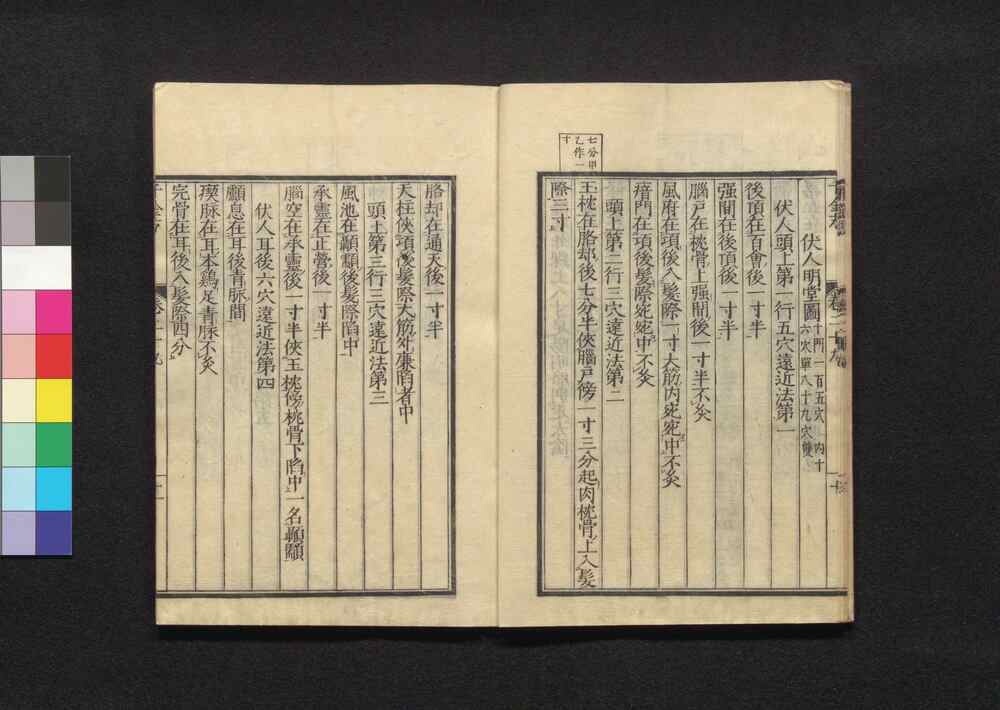 伏人明堂圖十門一百五穴內十六穴單八十九穴雙
伏人頭上第一行五穴遠近法第一
後頂在百會後一寸半
强間在後頂後一寸半
腦戶在枕骨上强間後一寸半不灸
風府在項後入髮際一寸大筋內宛宛中不灸
瘖門在項後髮際宛宛中不灸
頭上第二行三穴遠近法第二
七分甲
乙作一
寸
玉枕在胳却後七分半俠腦戶傍一寸三分起肉枕骨上入髮
際三寸
胳却在通天後一寸半
天柱俠項後髮際大筋外廉陷者中
頭上第三行三穴遠近法第三
風池在顳顬後髮際陷中
承靈在正營後一寸半
腦空在承靈後一寸半俠玉枕傍枕骨下陷中一名顳顬
伏人耳後六穴遠近法第四
顱息在耳後青脉間
瘈脉在耳本鷄足青脉不灸
完骨在耳後入髮際四分